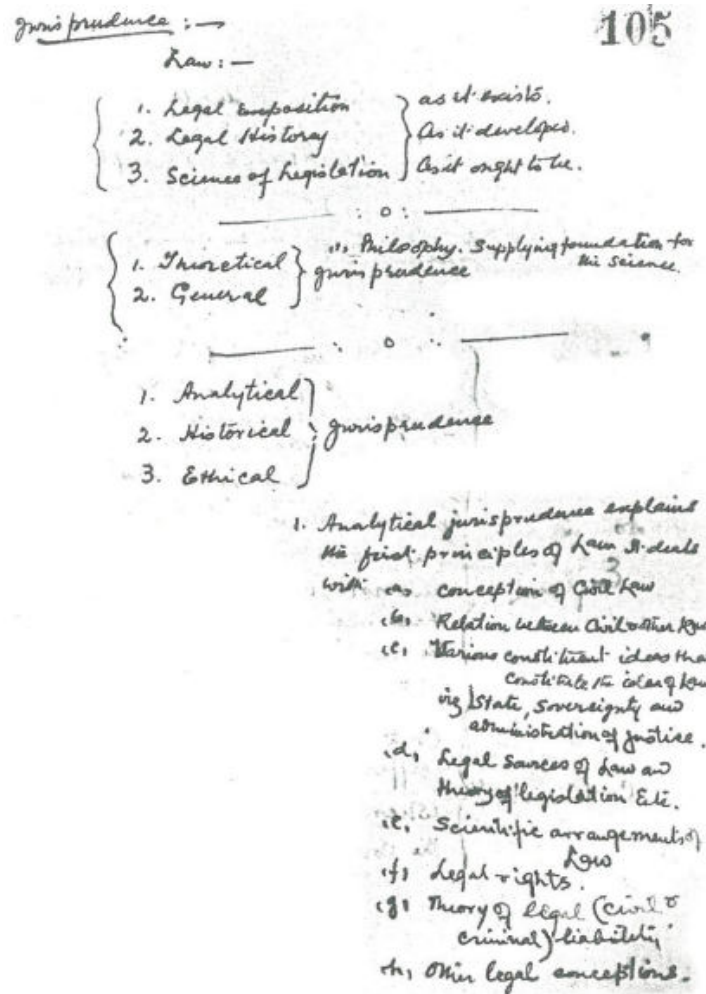 Jurisprudence :—
105
Law :—
1. Legal Exposition } as it exists.
2. Legal History } As it developed.
3. Science of Legislation } As it ought to be.
: o :
1. Theoretical } (1) Philosophy. Supplying foundation for
2. General } Jurisprudence the science.
: o :
1. Analytical
2. Historical } Jurisprudence
3. Ethical
1. Analytical jurisprudence explains
the first principles of Law. It deals
with (a) conception of Civil Law
(b) Relation between Civil & other
(c) Various constituent ideas that
constitute the idea of Law
viz State, Sovereignty and
administration of justice.
(d) Legal Sources of Law and
theory of legislation Etc.
(e) Scientific arrangements of
Law
(f) Legal rights.
(g) Theory of legal (civil &
criminal) liability
(h) Other legal conceptions.